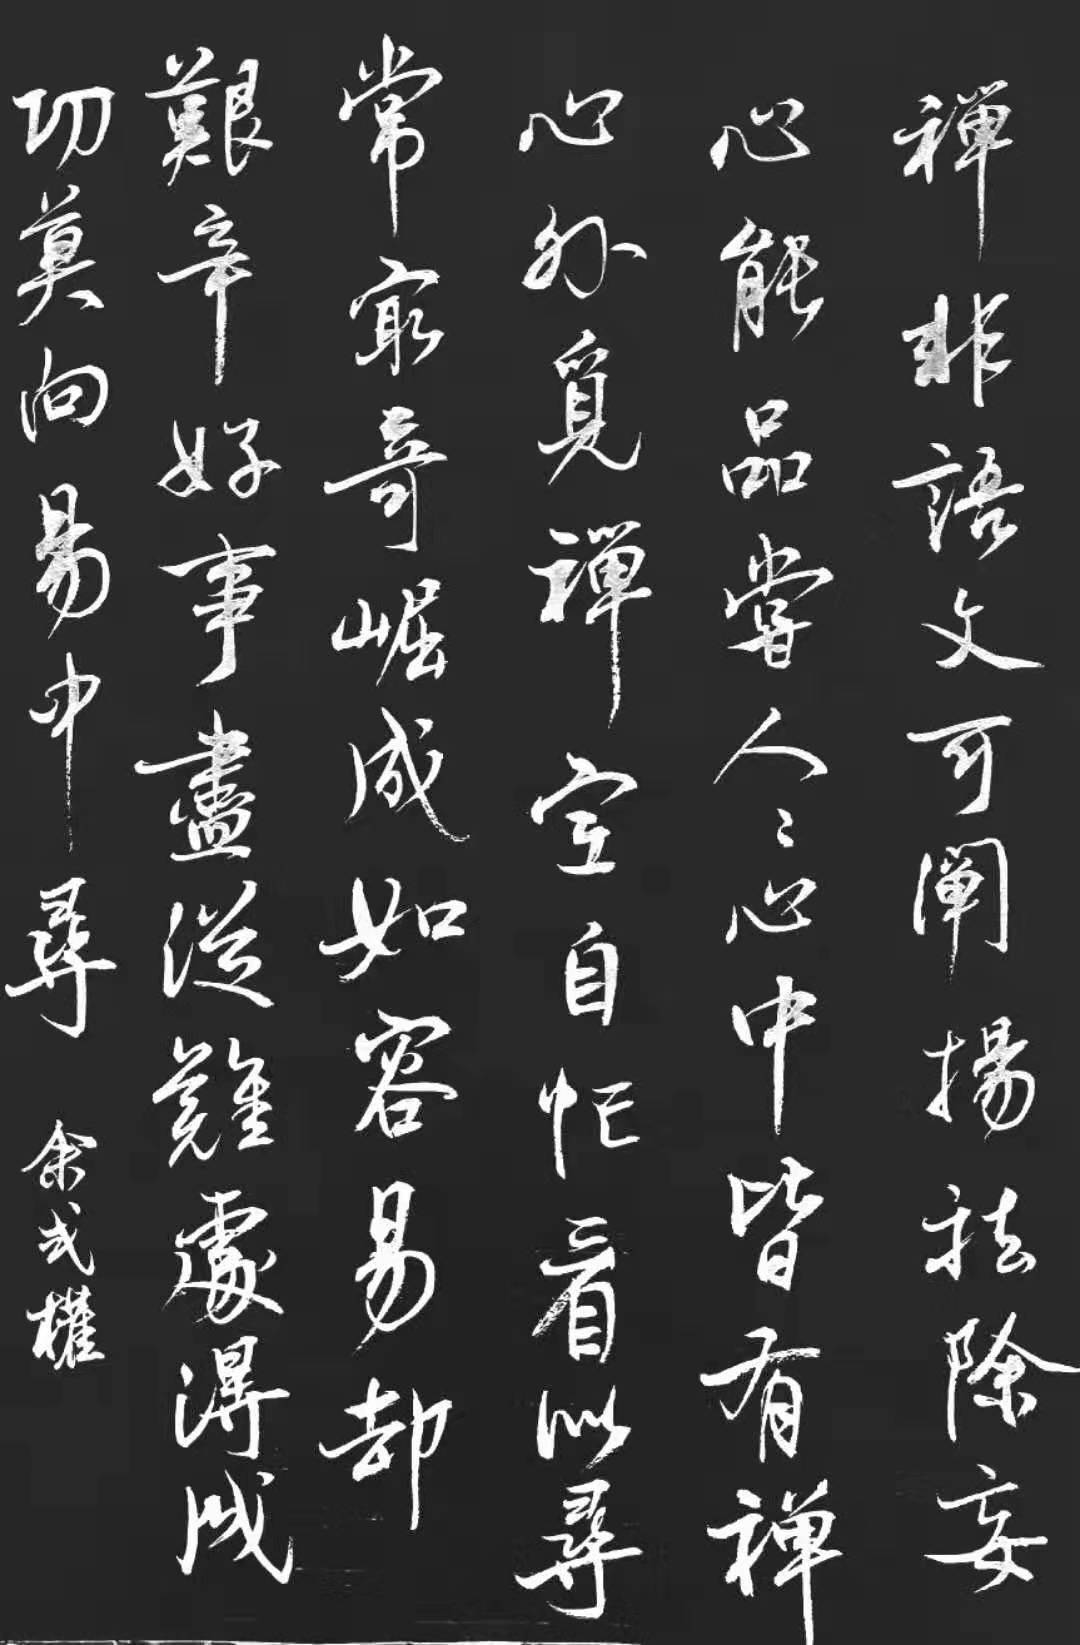 禅非語文可阐揚袪除妄
心能品尝人々心中皆有禅
心外覓禅空自忙看似尋
常寂奇崛成如容易却
艱辛好事盡從難處得成
功莫向易中尋 余武權